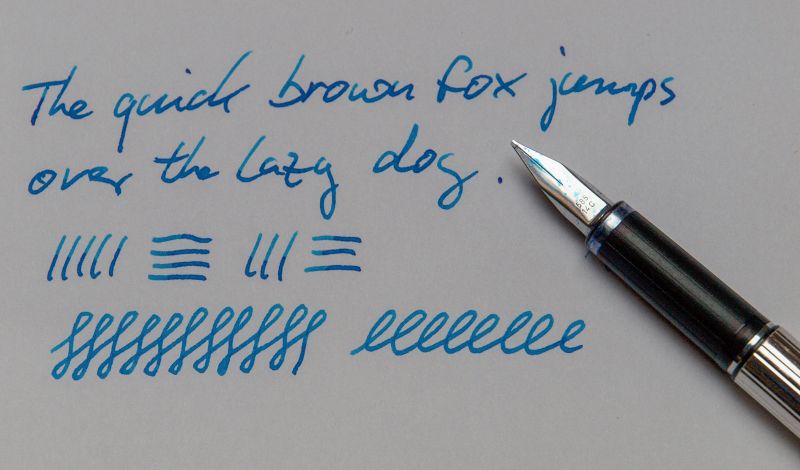 The quick brown fox jumps
over the lazy dog.
585
14C